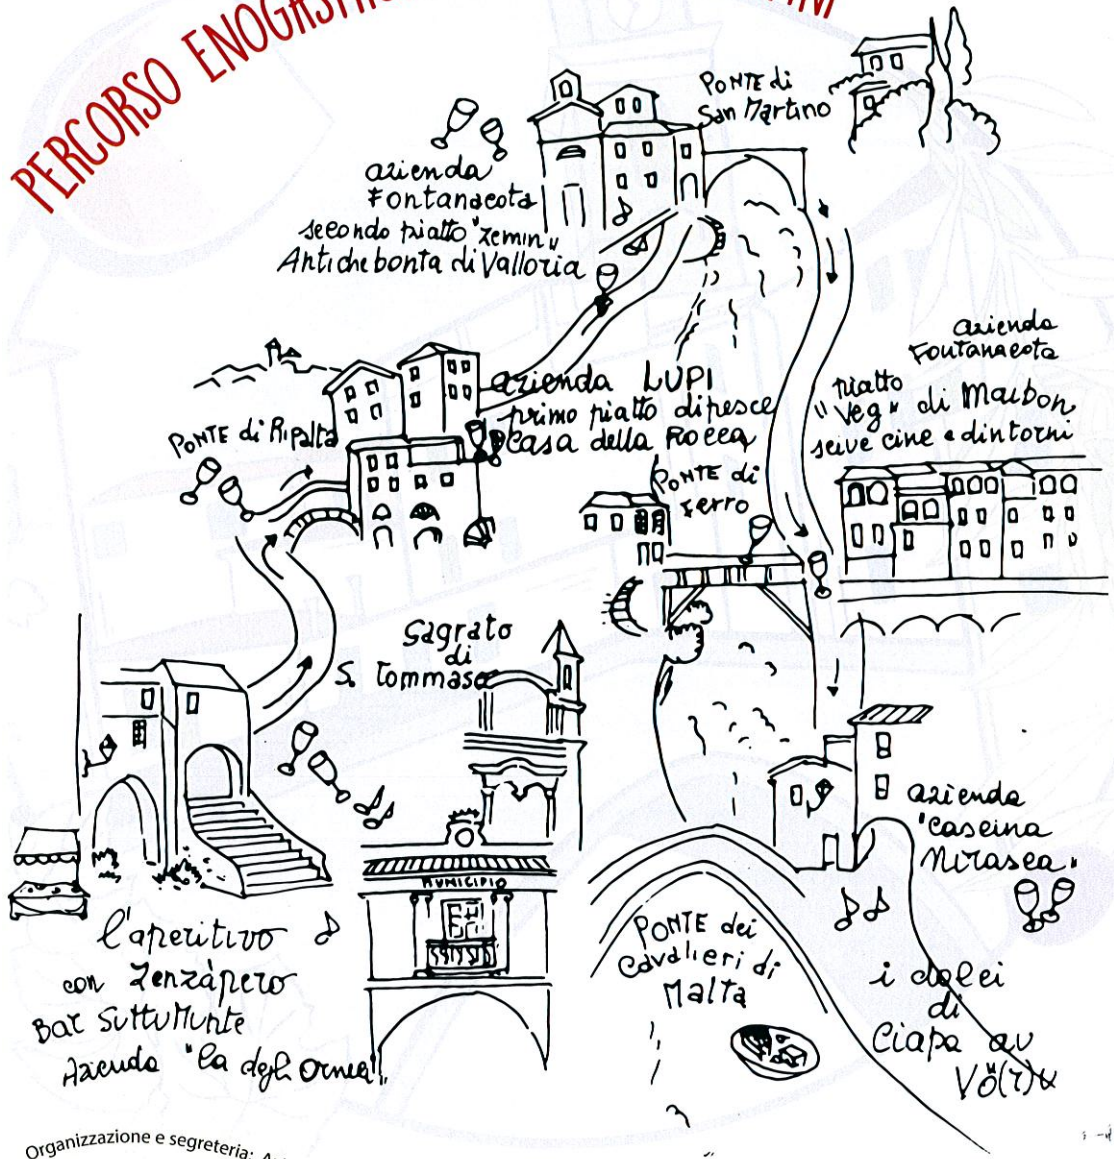 PERCORSO
Ponte di
San Martino
azienda
Fontanacota
secondo piatto "zemin"
Antiche bonta di Valloria
azienda
Fontanacota
piatto
"veg" di Maibon
seive cine e dintorni
azienda LUPI
primo piatto di pesce
Casa della Rocca
PONTE di Ripalta
PONTE di
ferro
Sagrato
di
S. Tommaso
MUNICIPIO
l'aperitivo
con Zenzàpero
Bar SuttuMunte
Azienda
PONTE dei
Cavalieri di
Malta
azienda
"Cascina
Nirasca"
i dolci
di
Ciapa au
Organizzazione e segreteria: